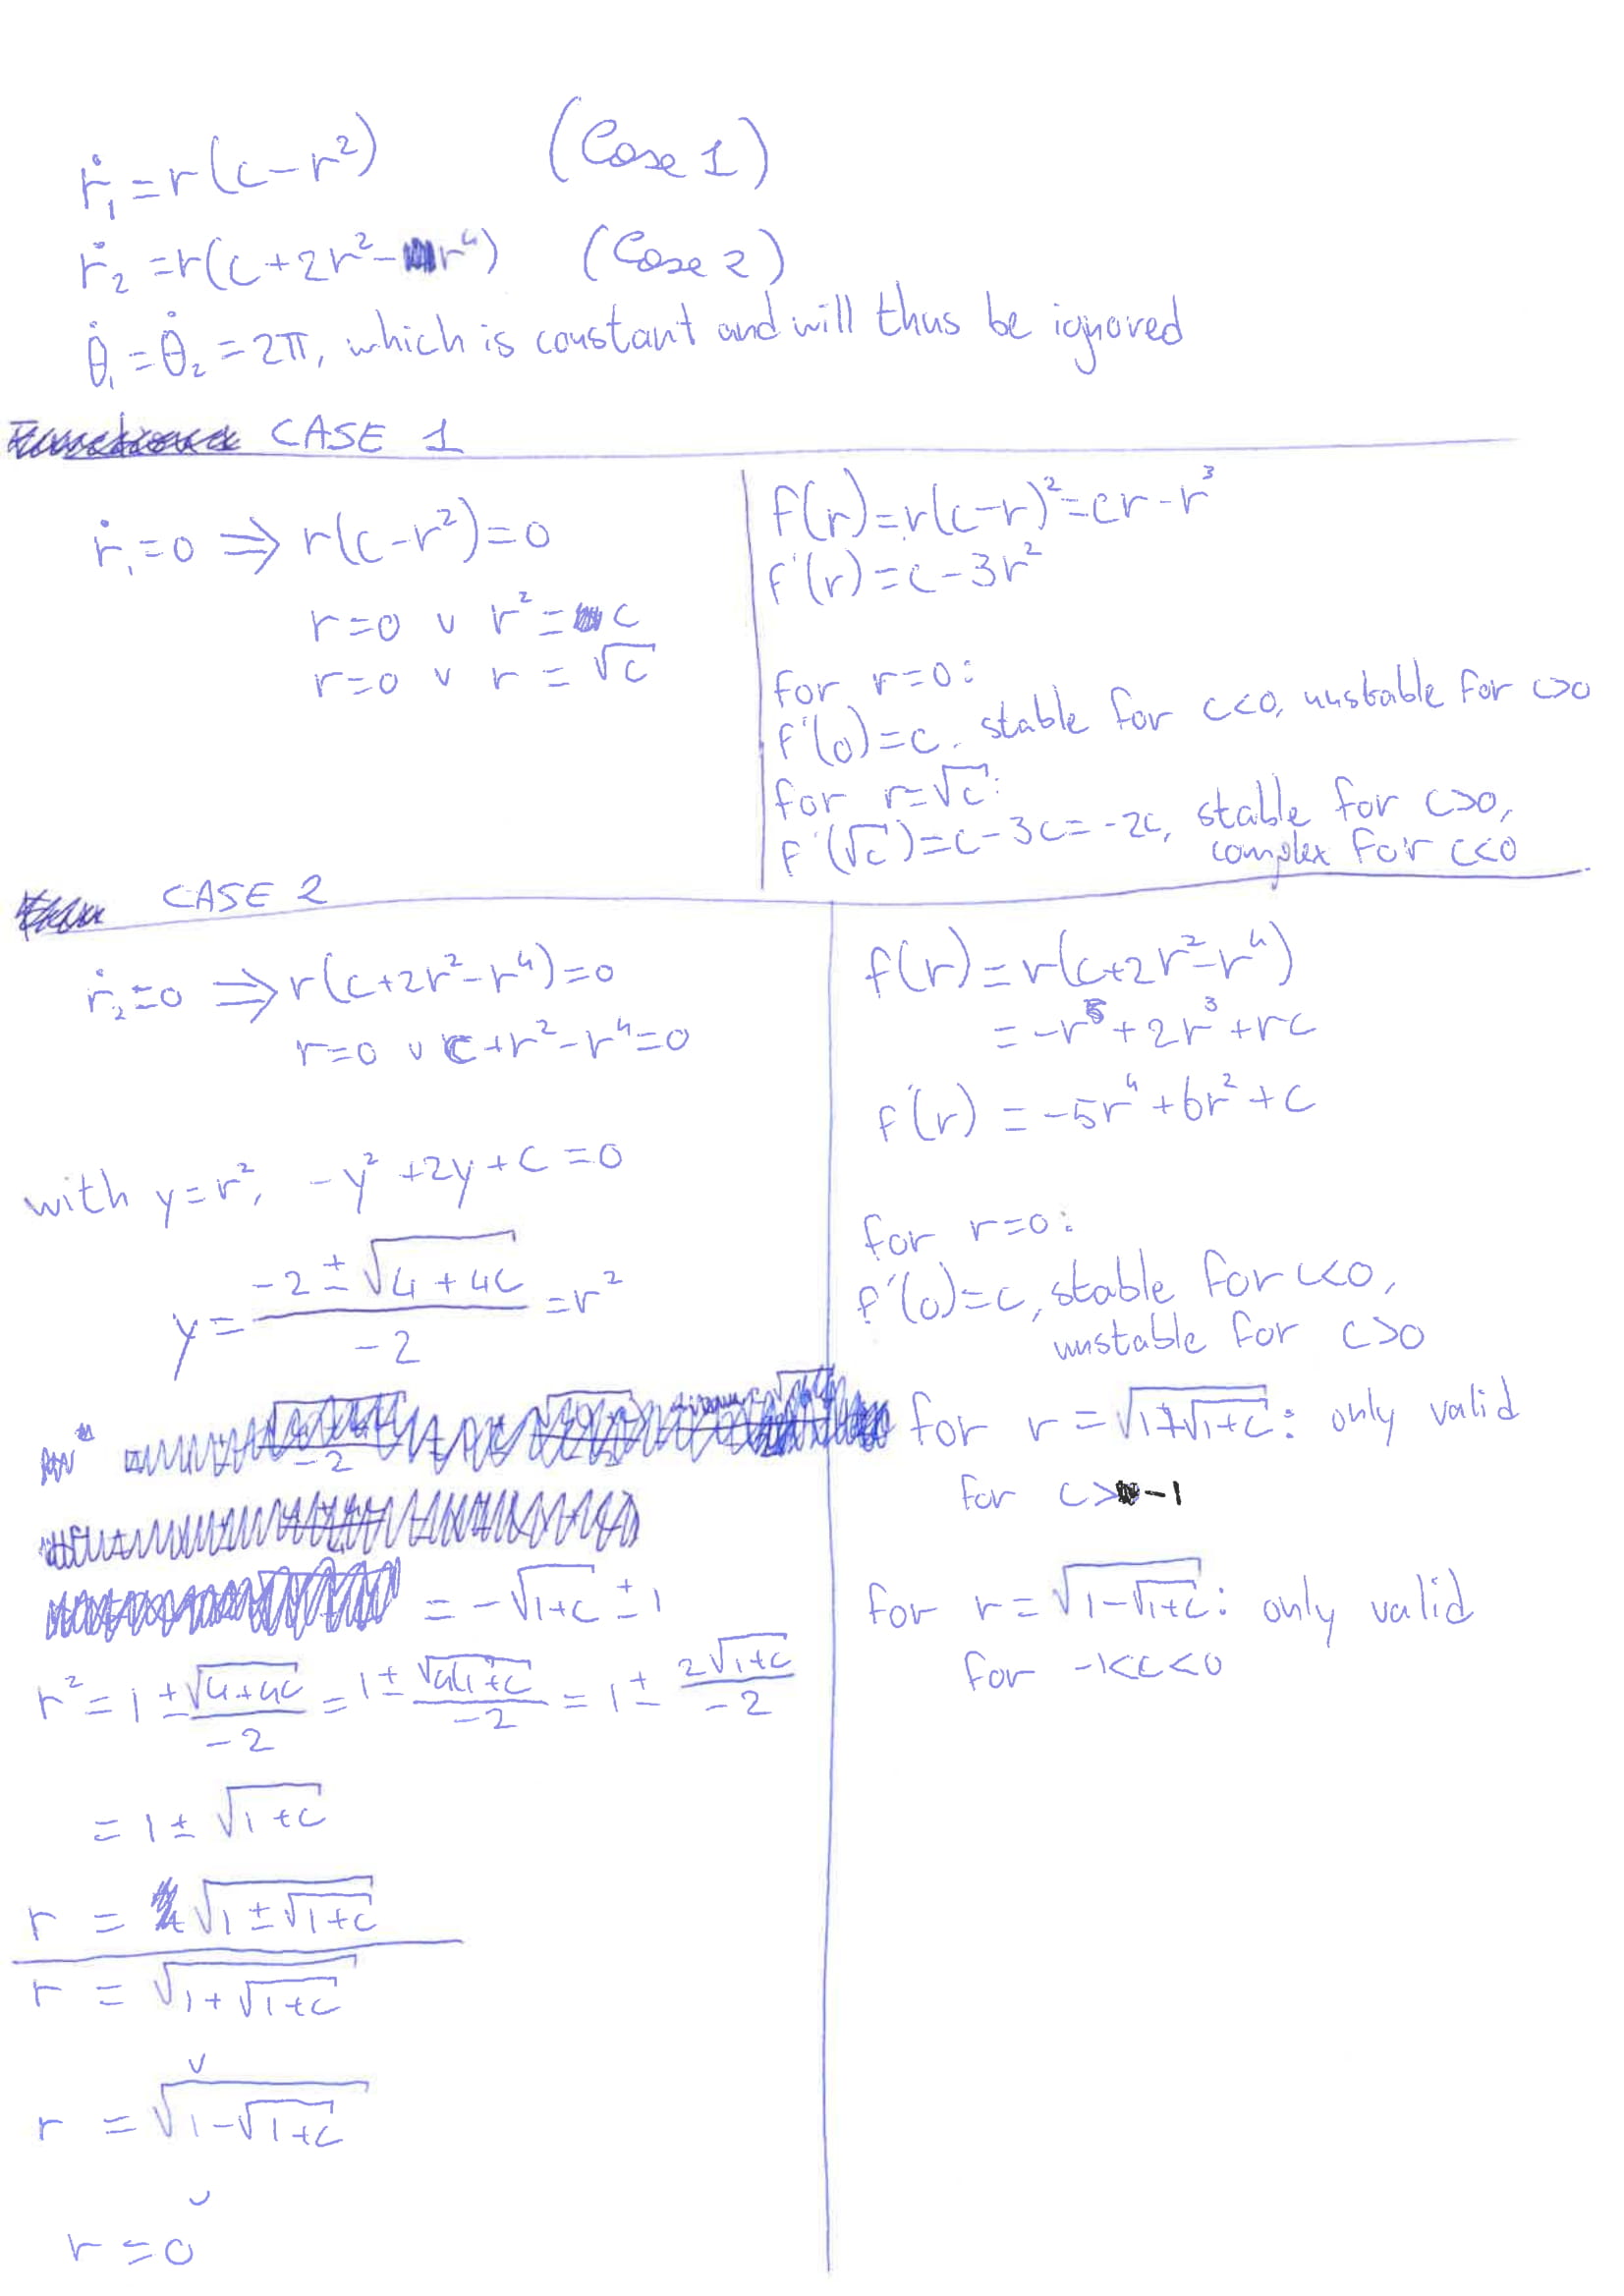 ṙ₁ = r(c-r²) (Case 1)
ṙ₂ = r(c+2r²-r⁴) (Case 2)
θ̇₁ = θ̇₂ = 2π, which is constant and will thus be ignored
CASE 1
ṙ₁=0 ⇒ r(c-r²)=0
r=0 ∨ r²=c
r=0 ∨ r = √c
f(r)=r(c-r)²=cr-r³
f'(r)=c-3r²
for r=0:
f'(0)=c. stable for c<0, unstable for c>0
for r=√c:
f'(√c)=c-3c=-2c, stable for c>0,
complex for c<0
CASE 2
ṙ₂=0 ⇒ r(c+2r²-r⁴)=0
r=0 ∨ c+r²-r⁴=0
with y=r², -y²+2y+c=0
y = (-2 ± √(4+4c))/(-2) = r²
= -√(1+c) ± 1
r² = 1 ± √(4+4c)/(-2) = 1 ± √(4(1+c))/(-2) = 1 ± 2√(1+c)/(-2)
= 1 ± √(1+c)
r = √(1±√(1+c))
r = √(1+√(1+c))
∨
r = √(1-√(1+c))
∨
r = 0
f(r)=r(c+2r²-r⁴)
= -r⁵+2r³+rc
f'(r) = -5r⁴+6r²+c
for r=0:
f'(0)=c, stable for c<0,
unstable for c>0
for r=√(1+√(1+c)): only valid
for c>-1
for r=√(1-√(1+c)): only valid
for -1<c<0